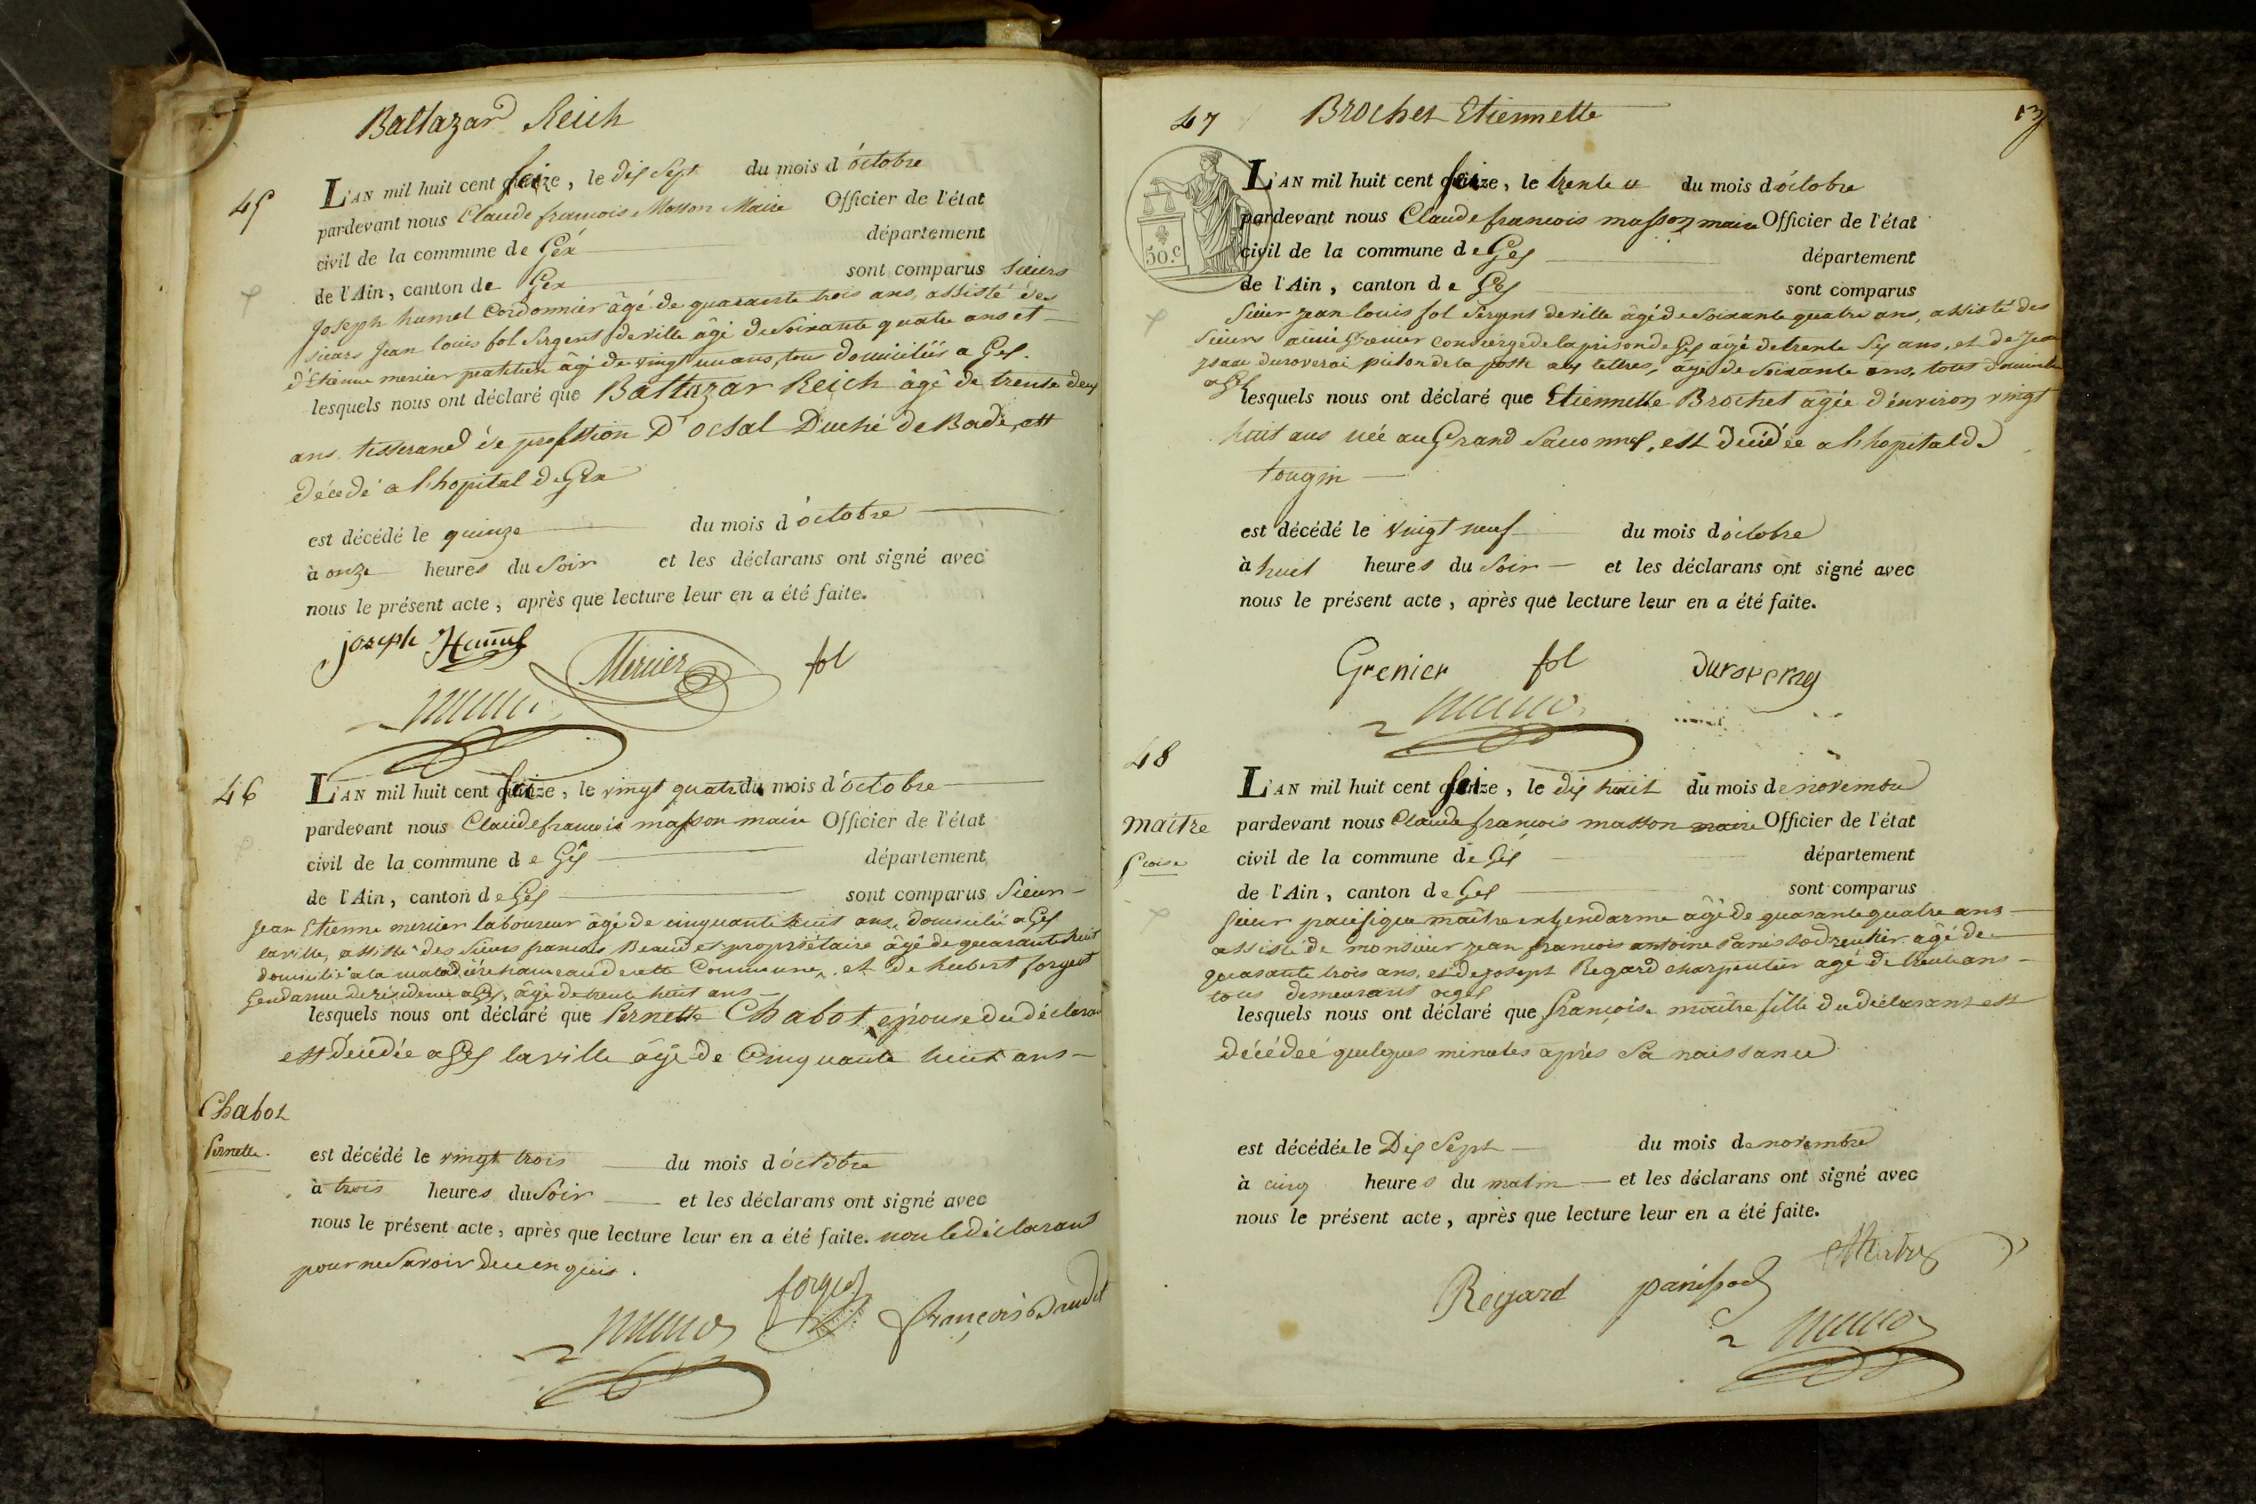 Baltazard Reich
45
L'AN mil huit cent seize, le dix sept du mois d'octobre
pardevant nous Claude francois Masson Maire Officier de l'état
civil de la commune de Géx département
de l'Ain, canton de Gex sont comparus sieurs
Joseph humel Cordonnier âgé de quarante trois ans, assisté des
sieurs Jean louis fol Sergent de ville âgé de Soixante quatre ans et
d'Etienne mercier praticien âgé de vingt un ans, tous domiciliés a Gex.
lesquels nous ont déclaré que Baltazar Reich âgé de trente deux
ans tisserand de profession D'octal Duché de Bade, est
décedé a l'hopital de Gex
est décédé le quinze du mois d'octobre
à onze heures du Soir et les déclarans ont signé avec
nous le présent acte, après que lecture leur en a été faite.
joseph Hamel Mercier fol
46
L'AN mil huit cent seize, le vingt quatre du mois d'octobre
pardevant nous Claude francois masson maire Officier de l'état
civil de la commune de Gex département
de l'Ain, canton de Gex sont comparus Sieur
Jean Etienne mercier laboureur âgé de cinquante huit ans, domicilié a Gex
la ville, assisté des Sieurs francois Beaudet propriétaire âgé de quarante huit
domicilié a la maladière hameau de cette Commune, et de hubert forgeot
Gendarme de résidence a Gex, âgé de trente huit ans
lesquels nous ont déclaré que Pernette Chabot, épouse du déclarant
est décédée a Gex la ville âgé de Cinquante huit ans
Chabot
Pernette.
est décédé le vingt trois du mois d'octobre
à trois heures du Soir et les déclarans ont signé avec
nous le présent acte, après que lecture leur en a été faite. non le déclarant
pour ne Savoir de ce enquis.
forgeot françois Baudet
13
47 Brochet Etiennette
L'AN mil huit cent seize, le trente un du mois d'octobre
pardevant nous Claude francois masson maire Officier de l'état
civil de la commune de Gex département
50.c
de l'Ain, canton de Gex sont comparus
Sieur jean louis fol Sergent de ville âgé de Soixante quatre ans, assisté des
Sieurs aimé Grenier concierge de la prison de Gex agé de trente Six ans, et de Jean
ysaac duroverai piéton de la poste aux lettres, âgé de Soixante ans, tous domiciliés
a Gex
lesquels nous ont déclaré que Etiennette Brochet âgée d'environ vingt
huit ans née au Grand Saconnex, est décédée a l'hopital de
tougin
est décédé le vingt neuf du mois d'octobre
à huit heures du Soir et les déclarans ont signé avec
nous le présent acte, après que lecture leur en a été faite.
Grenier fol duroverey
48
L'AN mil huit cent seize, le dix huit du mois de novembre
maître
pardevant nous Claude francois masson maire Officier de l'état
civil de la commune de Gex département
de l'Ain, canton de Gex sont comparus
Sieur pacifique maître ex gendarme âgé de quarante quatre ans
assisté de monsieur jean francois antoine Panissod rentier âgé de
quarante trois ans, et de joseph Regard charpentier agé de trente ans
tous demeurant a gex
lesquels nous ont déclaré que françoise maître fille du déclarant est
décédeé quelques minutes après Sa naissance
est décédée le Dix Sept du mois de novembre
à cinq heures du matin et les déclarans ont signé avec
nous le présent acte, après que lecture leur en a été faite.
Regard panissod Maitre